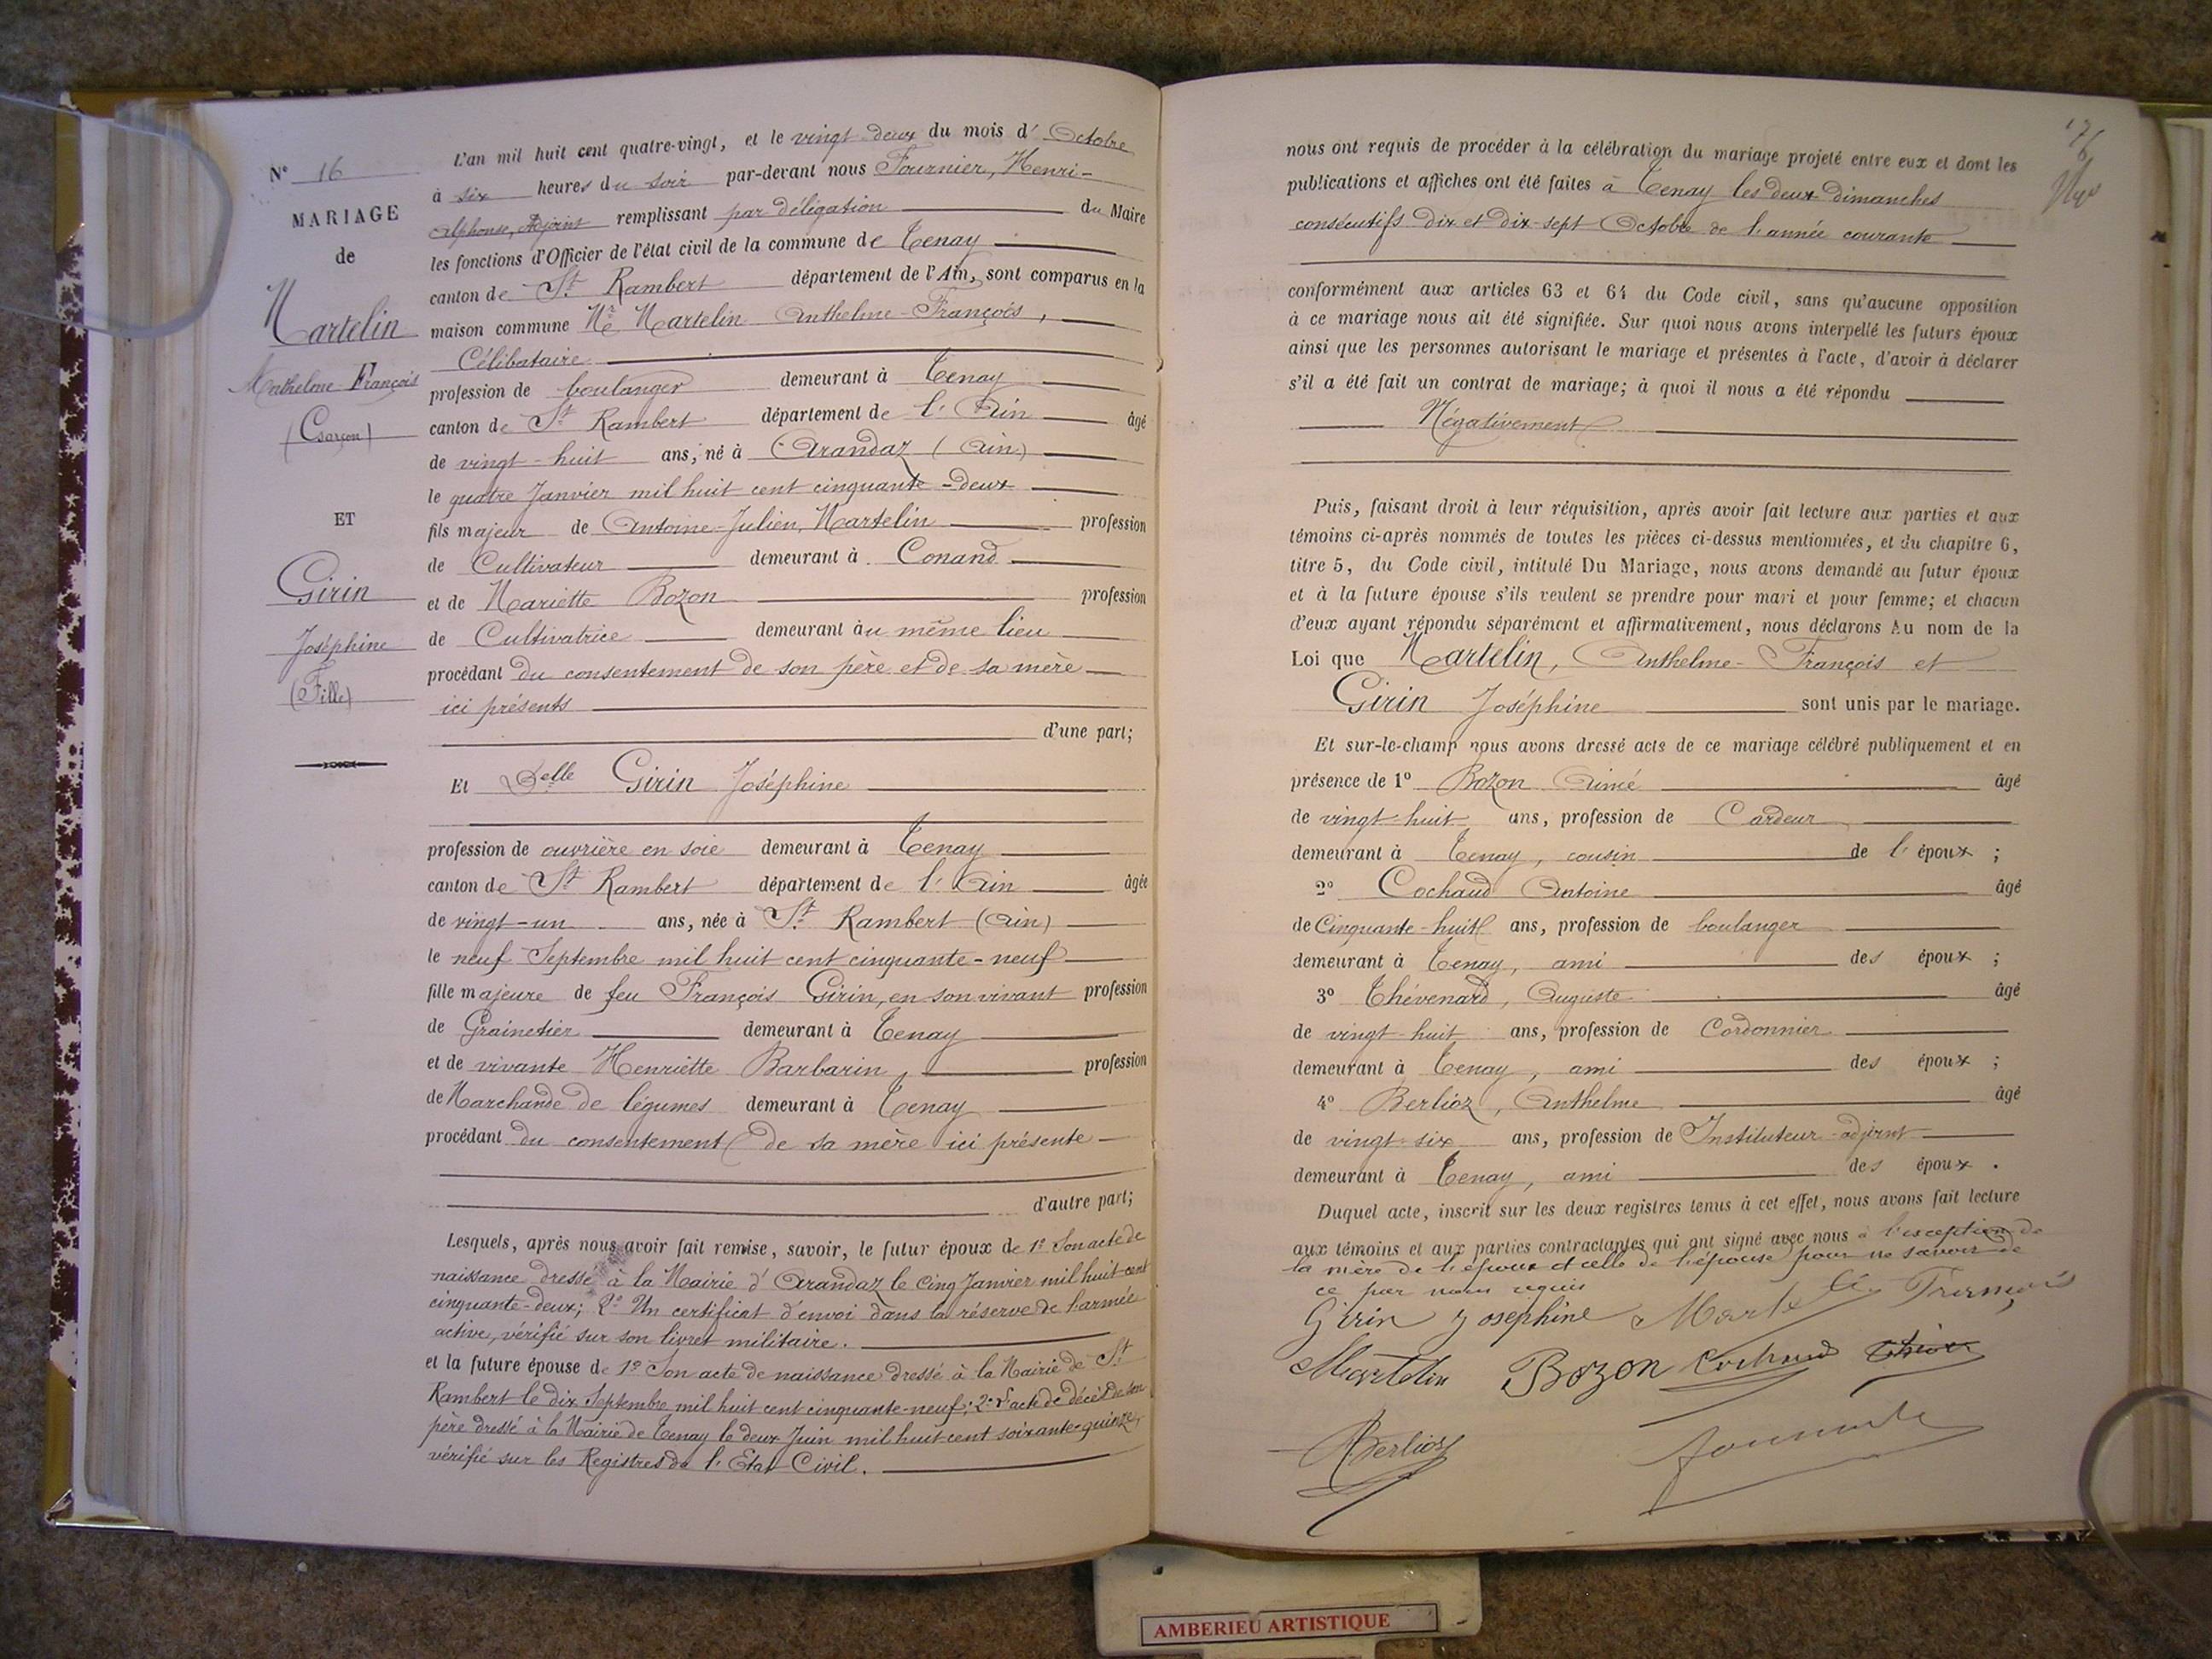 N° 16
MARIAGE
de
Martelin
Anthelme François
(Garçon)
ET
Girin
Joséphine
(Fille)
L'an mil huit cent quatre-vingt, et le vingt deux du mois d' Octobre
à six heures du soir par-devant nous Fournier, Henri-
Alphonse, Adjoint remplissant par délégation du Maire
les fonctions d'Officier de l'état civil de la commune de Tenay
canton de St. Rambert département de l'Ain, sont comparus en la
maison commune Mr. Martelin Anthelme-François,
Célibataire
profession de boulanger demeurant à Tenay
canton de St. Rambert département de l'Ain âgé
de vingt-huit ans, né à Arandaz (Ain)
le quatre Janvier mil huit cent cinquante-deux
fils majeur de Antoine-Julien, Martelin profession
de Cultivateur demeurant à Conand
et de Mariette Bozon profession
de Cultivatrice demeurant au même lieu
procédant du consentement de son père et de sa mère
ici présents
d'une part;
Et Delle Girin Joséphine
profession de ouvrière en soie demeurant à Tenay
canton de St. Rambert département de l'Ain âgée
de vingt-un ans, née à St. Rambert (Ain)
le neuf Septembre mil huit cent cinquante-neuf
fille majeure de feu François Girin, en son vivant profession
de Grainetier demeurant à Tenay
et de vivante Henriette Barbarin, profession
de Marchande de légumes demeurant à Tenay
procédant du consentement de sa mère ici présente
d'autre part;
Lesquels, après nous avoir fait remise, savoir, le futur époux de 1° Son acte de
naissance dressé à la Mairie d'Arandaz le cinq Janvier mil huit cent
cinquante-deux; 2° Un certificat d'envoi dans la réserve de l'armée
active, vérifié sur son livret militaire.
et la future épouse de 1° Son acte de naissance dressé à la Mairie de St.
Rambert le dix Septembre mil huit cent cinquante-neuf; 2° L'acte de décès de son
père dressé à la Mairie de Tenay le deux Juin mil huit cent soixante-quinze,
vérifié sur les Registres de l'Etat Civil.
nous ont requis de procéder à la célébration du mariage projeté entre eux et dont les
publications et affiches ont été faites à Tenay les deux dimanches
consécutifs dix et dix-sept Octobre de l'année courante
conformément aux articles 63 et 64 du Code civil, sans qu'aucune opposition
à ce mariage nous ait été signifiée. Sur quoi nous avons interpellé les futurs époux
ainsi que les personnes autorisant le mariage et présentes à l'acte, d'avoir à déclarer
s'il a été fait un contrat de mariage; à quoi il nous a été répondu
Négativement
Puis, faisant droit à leur réquisition, après avoir fait lecture aux parties et aux
témoins ci-après nommés de toutes les pièces ci-dessus mentionnées, et du chapitre 6,
titre 5, du Code civil, intitulé Du Mariage, nous avons demandé au futur époux
et à la future épouse s'ils veulent se prendre pour mari et pour femme; et chacun
d'eux ayant répondu séparément et affirmativement, nous déclarons Au nom de la
Loi que Martelin, Anthelme-François et
Girin Joséphine sont unis par le mariage.
Et sur-le-champ nous avons dressé acte de ce mariage célébré publiquement et en
présence de 1° Bozon Aimé âgé
de vingt-huit ans, profession de Cardeur
demeurant à Tenay, cousin de l'époux ;
2° Cochaud Antoine âgé
de Cinquante-huit ans, profession de boulanger
demeurant à Tenay, ami des époux ;
3° Thévenard, Auguste âgé
de vingt-huit ans, profession de Cordonnier
demeurant à Tenay, ami des époux ;
4° Berlioz, Anthelme âgé
de vingt-six ans, profession de Instituteur-adjoint
demeurant à Tenay, ami des époux .
Duquel acte, inscrit sur les deux registres tenus à cet effet, nous avons fait lecture
aux témoins et aux parties contractantes qui ont signé avec nous à l'exception de
la mère de l'époux et celle de l'épouse pour ne savoir de
ce par nous requis
Girin Josephine
Martelin Bozon Cochaud
Berlioz
AMBERIEU ARTISTIQUE